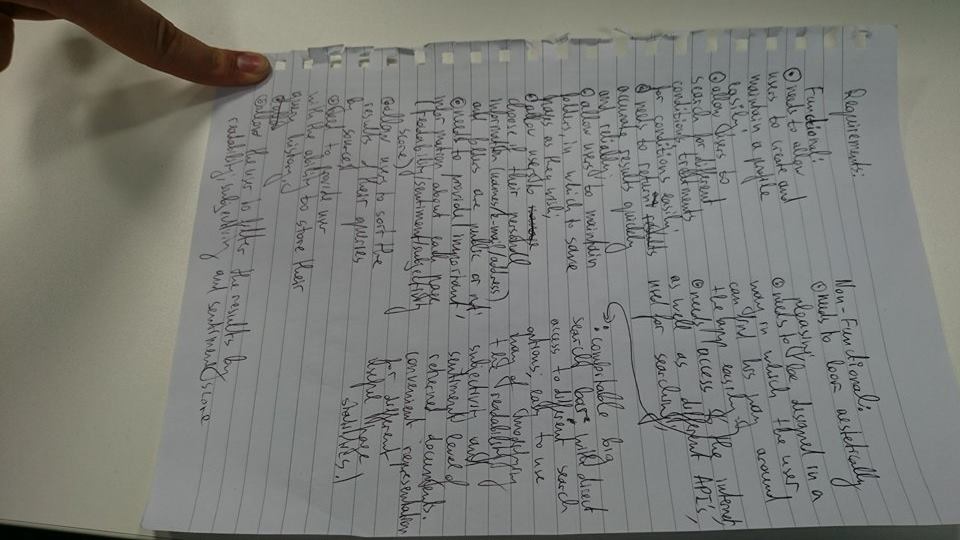 Requirements:
Functional:
needs to allow
users to create and
maintain a profile
easily;
allow users to
search for different
conditions, treatments
for conditions easily;
needs to represent
accurate results quickly
and reliably;
allow users to maintain
folders in which to save
pages as they wish;
allow users to
choose if their personal
information (names/e-mail/address)
and folders are public or not;
needs to provide important
information about each page
(readability/sentiment/subjectivity
score)
allow users to sort the
results of their queries
& sources
need to provide user
with the ability to store their
query history;
allow the user to filter the results by
readability, subjectivity and sentiment score
Non-Functional:
needs to look astetically
pleasing;
needs to be designed in a
way in which the user
can find his way around
the app easily;
needs access to the internet,
as well as different API's,
used for searching
S: comfortable big
search bar with direct
access to different search
options, easy to use
transitions;
test of readability,
subjectivity and
sentiment level of
returned documents.
convenient representation
for different
page